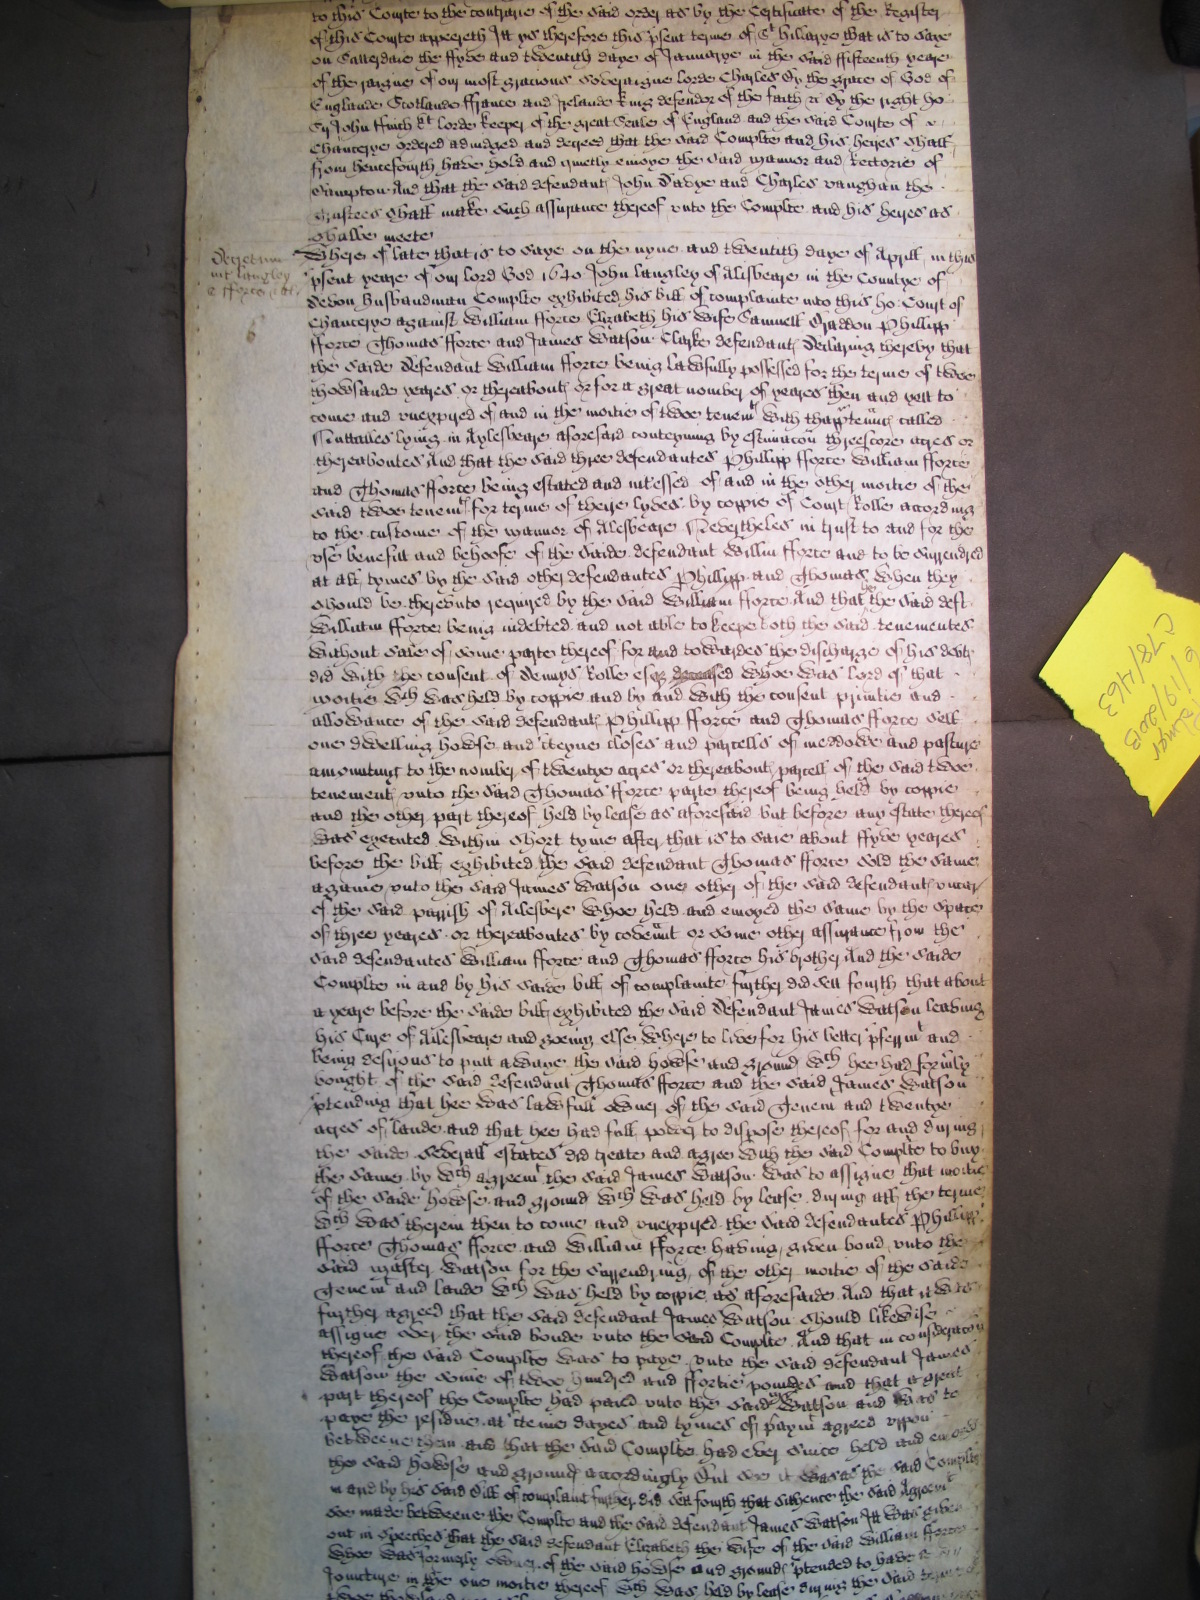 to this Courte to the contrarie of the said order as by the Certificate of the Register
of this Courte appeereth It ys therefore this psent terme of St hillarye that is to saye
on Satterdaie the ffyve and twentith daye of Januarye in the said fifteenth yeare
of the raigne of our most gracious Soveraigne lorde Charles By the grace of God of
Englande Scotlande ffrance and Irelande King defendor of the faith &c By the right ho
Sr John ffinch kt lorde keeper of the great Seale of England and the said Courte of
Chancerye ordered adiudged and decreed that the said Complte and his heyres shall
from henceforth have hold and quietly enioye the said mannor and Rectorie of
Sampton And that the said defendant John and Charles vaughan the
trustees shall make such assurance thereof unto the Complte and his heyres as
shalbe meete
Decretum
int Langley
& fforce et al
Where of late that is to saye on the nyne and twentith daye of Aprill in this
psent yeare of our lord God 1640 John Langley of Ailsbeare in the Countye of
Devon husbandman Complte exhibited his bill of complainte into this ho: Court of
Chancerye against William fforce Elizabeth his wife Samuell Phillipp
fforce Thomas fforce and James Watson Clarke defendant Declaring thereby that
the saide defendant William fforce being lawfully possessed for the terme of twoe
thowsande yeares or thereabout or for a great number of yeares then and yett to
come and unexpired of and in the moitie of twoe tenemt with thapptenncs called
Nuttalles lying in Aylesbeare aforesaid conteyning by estimacon threescore acres or
thereaboutes And that the said three defendantes Phillipp fforce William fforce
and Thomas fforce being estated and intressed of and in the other moitie of the
said twoe tenemt for terme of theire lyves by coppie of Court Rolle according
to the custome of the mannor of Ailesbeare Nevertheles in trust to and for the
use benefitt and behoofe of the saide defendant Willm fforce and to be surrendred
at all tymes by the said other defendantes Phillipp and Thomas when they
should be thereunto required by the said William fforce And that he the said deft
William fforce being indebted and not able to keepe both the said tenementes
without sale of some parte thereof for and towardes the discharge of his debt
did with the consent of Dennys Rolle esqr deceased whoe was lord of that
moitie wch was held by coppie and by and with the consent privitie and
allowance of the said defendant Phillipp fforce and Thomas fforce sell
one dwelling howse and certeyne closes and parcells of meddowe and pasture
amounting to the number of twentye acres or thereabout parcell of the said twoe
tenement unto the said Thomas fforce parte thereof being held by coppie
and the other part thereof held by lease as aforesaid but before any estate thereof
was executed within short tyme after that is to saie about ffyve yeares
before the bill exhibited the said defendant Thomas fforce sold the same
againe unto the said James Watson one other of the said defendant vicar
of the said parrish of Ailesbere whoe held and enioyed the same by the space
of three yeares or thereaboutes by covennt or some other assurance from the
said defendantes William fforce and Thomas fforce his brother And the saide
Complte in and by his saide bill of complainte further did sett fourth that about
a yeare before the saide bill exhibited the said defendant James Watson leaving
his Cure of Ailesbeare and goeing else where to live for his better pferrmt and
being desirous to putt awaye the said howse and ground wch hee had formrly
bought of the said defendant Thomas fforce and the said James Watson
ptending that hee was lawfull owner of the said Tenemt and twentye
acres of lande and that hee had full power to dispose thereof for and during
the saide severall estates did treate and agree with the said Complte to buy
the same by wch agreemt the said James Watson was to assigne that moitie
of the saide howse and ground wch was held by lease during all the terme
wch was therein then to come and unexpired the said defendantes Phillipp
fforce Thomas fforce and William fforce having given bond unto the
said master Watson for the surrendring of the other moitie of the saide
Tenemt and lande wch was held by coppie as aforesaide And that it was
further agreed that the said defendant James Watson should likewise
assigne over the said bonde unto the said Complte And that in consideracon
thereof the said Complte was to paye unto the said defendant James
Watson the some of twoe hundred and fortie poundes and that a great
part thereof the Complte had paied unto the said Watson and was to
paye the residue at certeine dayes and tymes of paymt agreed uppon
betweene them and that the said Complte had ever since held and enioyed
the said howse and ground accordingly But soe it was as the said Complte
in and by his said bill of complaint further did sett fourth that sithence the said Agreemt
soe made betweene the Complte and the said defendant James Watson It was given
out in speeches that the said defendant Elizabeth the wife of the said William fforce
whoe was formerly owner of the said howse and ground ptended to have a
Joincture in the one moitie thereof wch was held by lease during the said terme
C78/463
6/19/2013